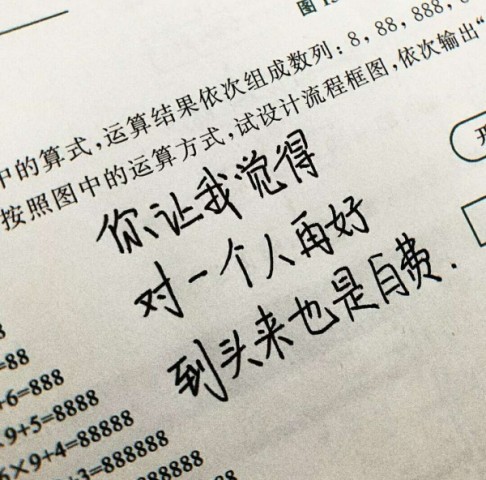 图 1
中的算式,运算结果依次组成数列:8,88,888,8
按照图中的运算方式,试设计流程框图,依次输出“
开
你让我觉得
对一个人再好
到头来也是自费.
8
=88
+6=888
×9+5=8888
6×9+4=88888
+3=888888
888888